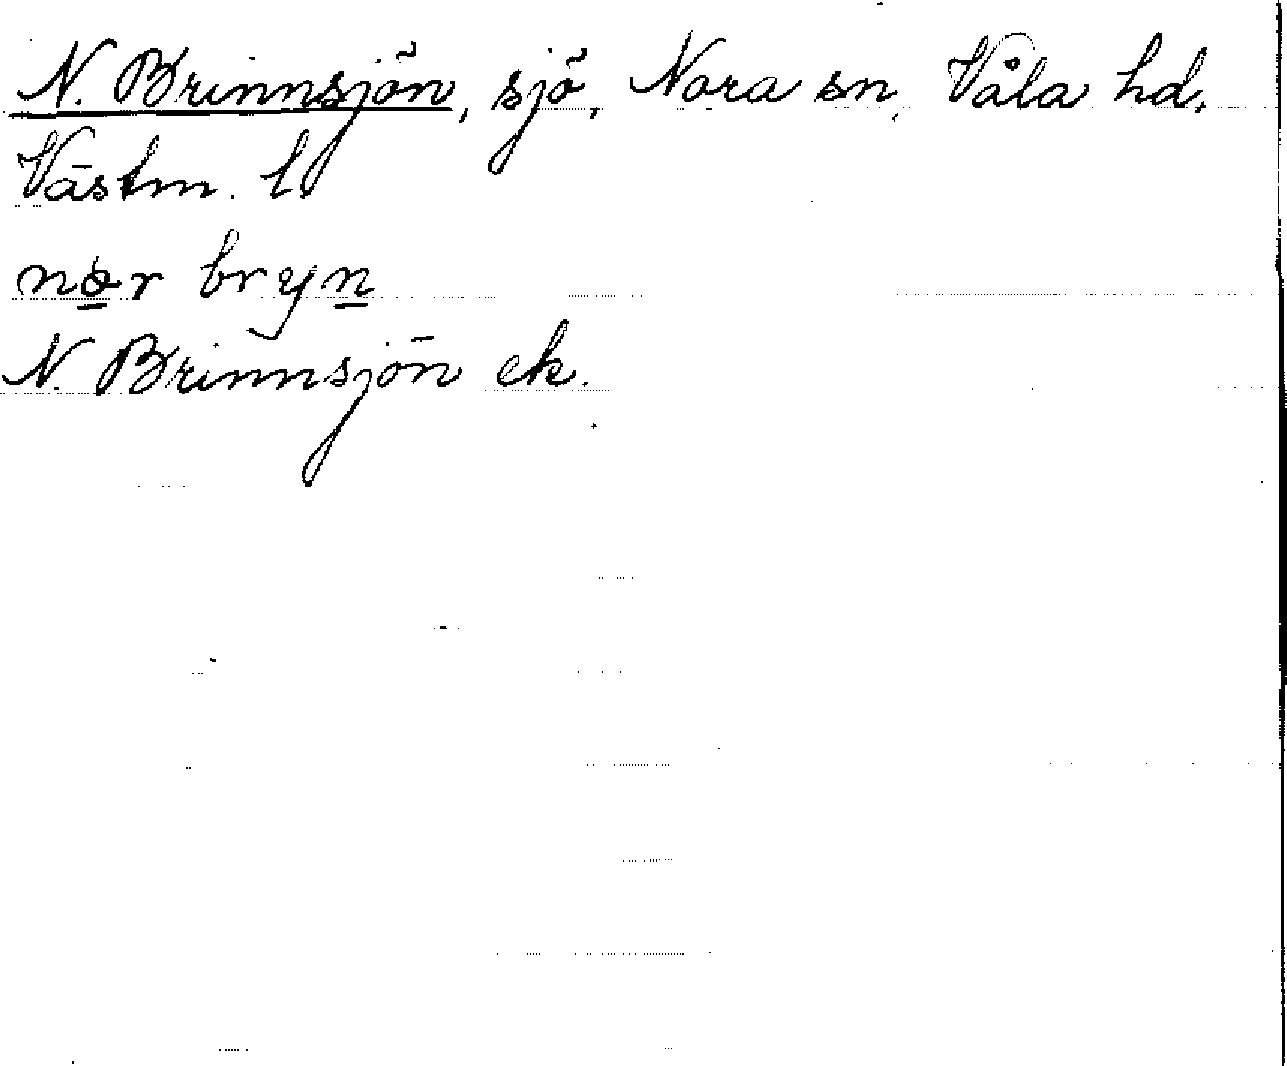 N. Brinnsjön, sjö, Nora sn, Våla hd,
Västm. l.
nør bryn
N. Brinnsjön ek.